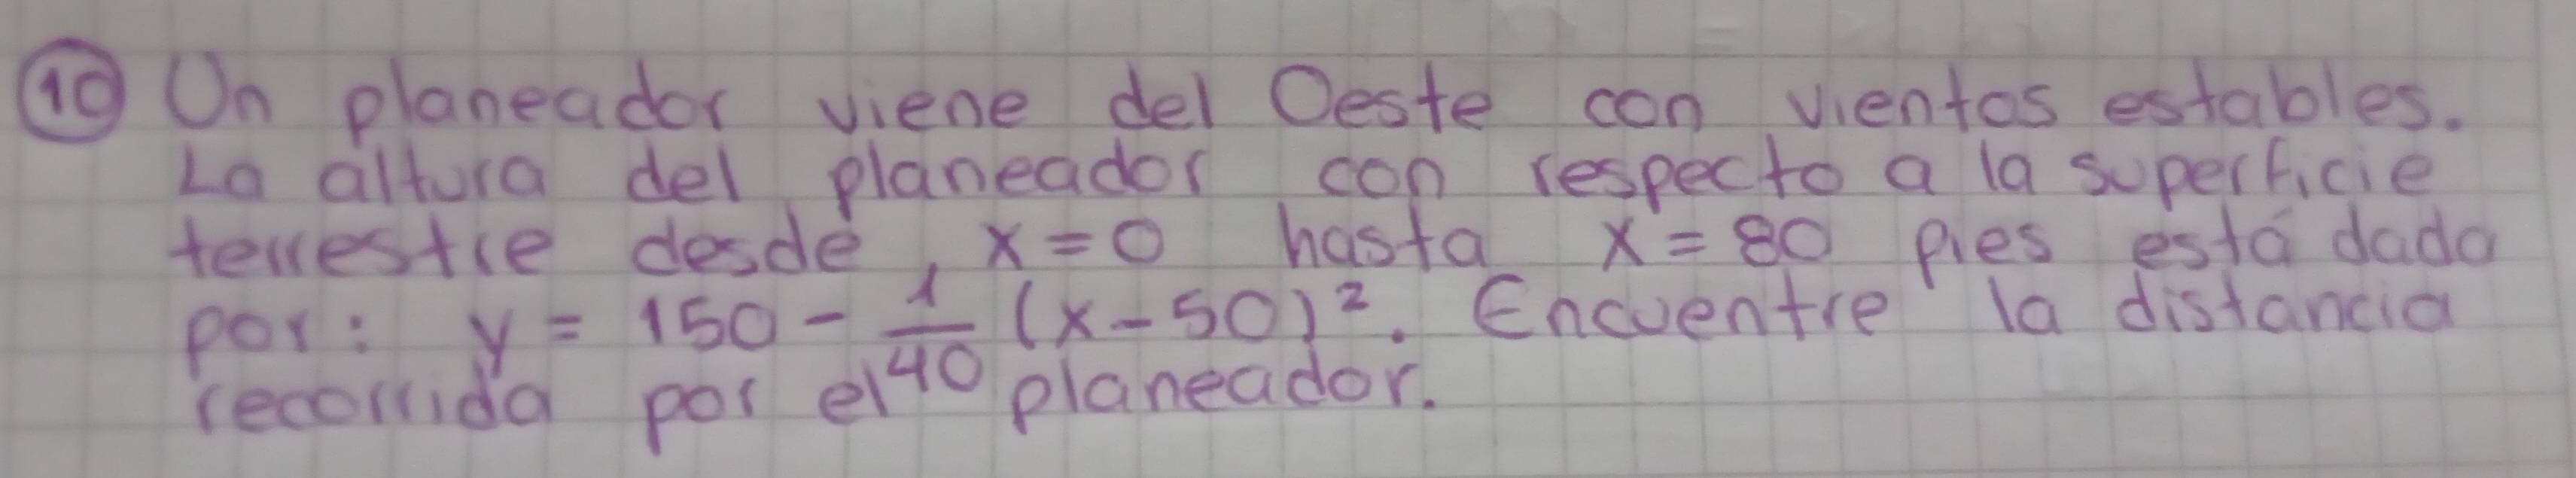 10 Un planeador viene del Oeste con vientos estables.
La altura del planeador con respecto a la superficie
terrestre desde, x=0 hasta x=80 pies está dada
por: y = 150 - 1/40 (x-50)². Encuentre la distancia
recorrida por el planeador.